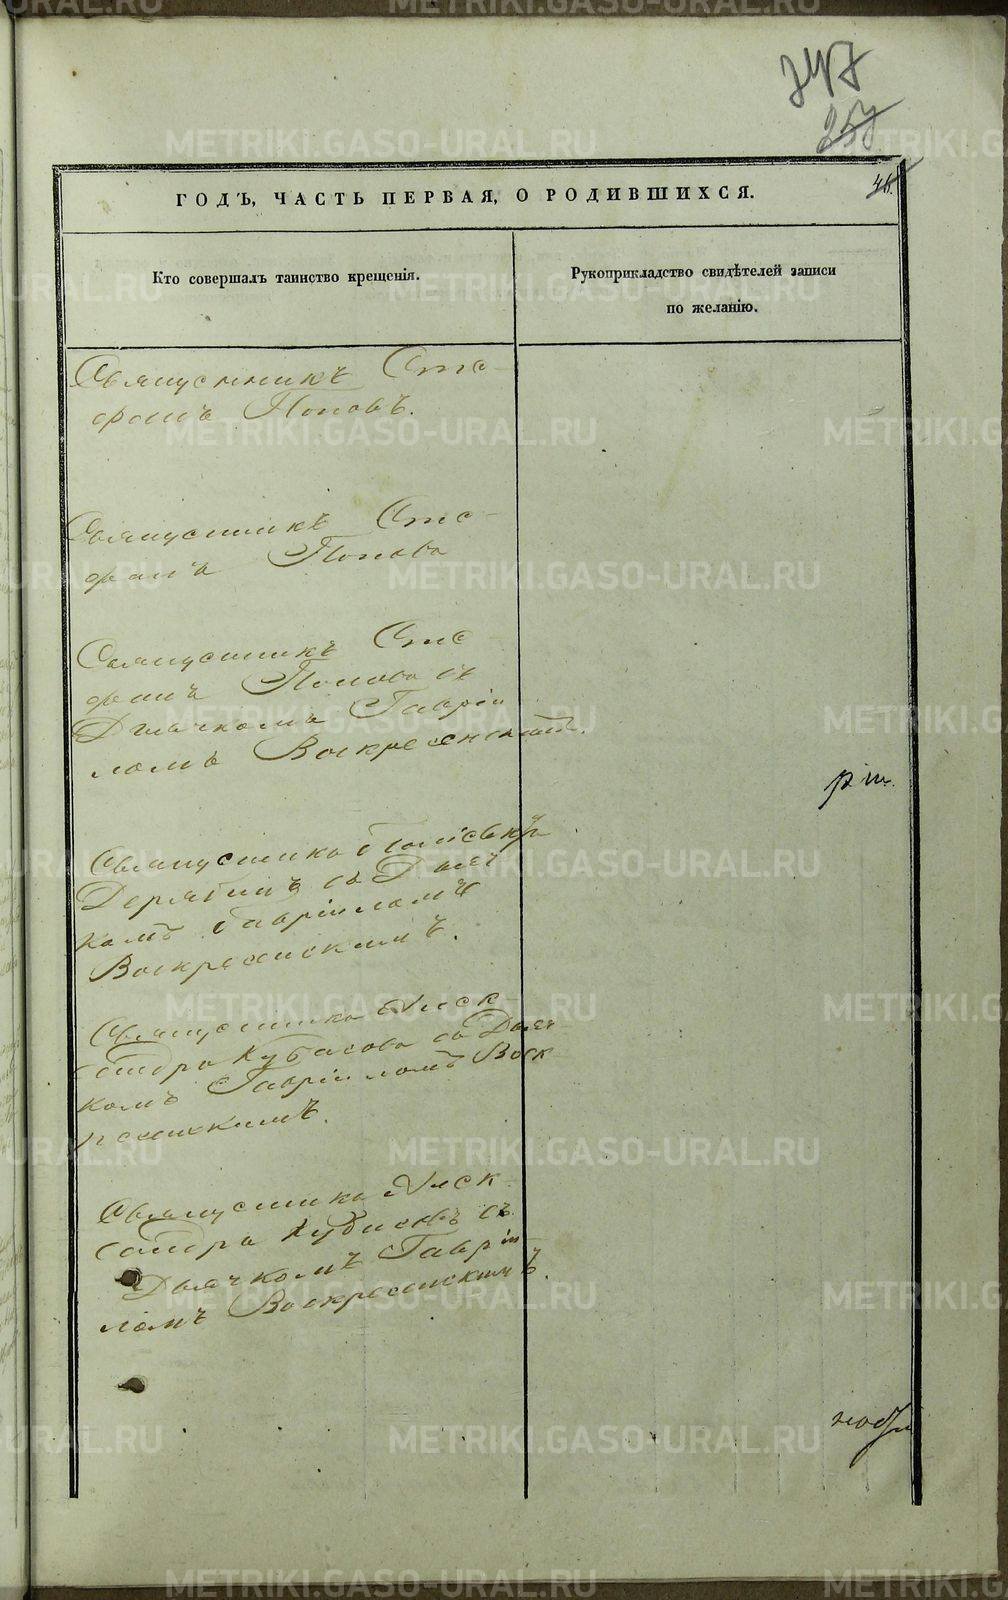 247
257
46.
ГОДЪ, ЧАСТЬ ПЕРВАЯ, О РОДИВШИХСЯ.
Кто совершалъ таинство крещенія.
Рукоприкладство свидѣтелей записи
по желанію.
Священникъ Сте-
фанъ Поповъ.
Священникъ Сте-
фанъ Поповъ
Священникъ Сте-
фанъ Поповъ съ
Дьячкомъ Гавріи
ломъ Воскресенскимъ.
Священникъ
Дерябинъ съ Дьяч
комъ Гавріиломъ
Воскресенскимъ.
Священникъ Алек-
сандръ Кубасовъ съ Дьяч-
комъ Гавріиломъ Воск
ресенскимъ.
Священникъ Алек-
сандръ Кубасовъ съ
Дьячкомъ Гавріи
ломъ Воскресенскимъ.
METRIKI.GASO-URAL.RU